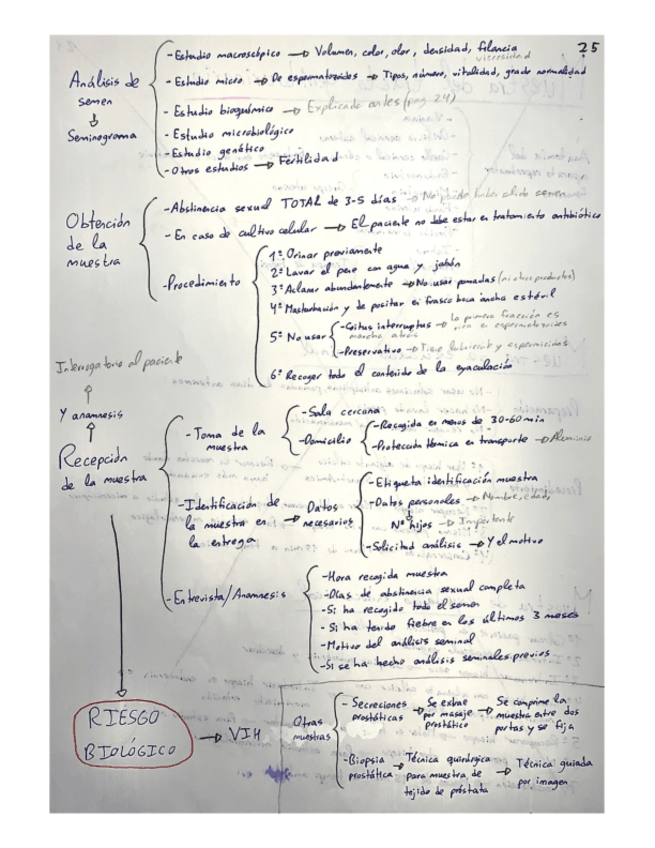 25
Análisis de
semen
Seminograma
- Estudio macroscópico → Volumen, color, olor, densidad, filancia
viscosidad
- Estudio micro → De espermatozoides → Tipos, número, vitalidad, grado normalidad
- Estudio bioquímico → Explicado antes (pag 24)
- Estudio microbiológico
- Estudio genético
- Otros estudios → Fertilidad
Obtención
de la
muestra
- Abstinencia sexual TOTAL de 3-5 días → No puede haber
- En caso de cultivo celular → El paciente no debe estar en tratamiento antibiótico
- Procedimiento
1º Orinar previamente
2º Lavar el pene con agua y jabón
3º Aclarar abundantemente → No usar pomadas (ni otros productos)
4º Masturbación y depositar en frasco boca ancha estéril
5º No usar
- Coitus interruptus → la primera fracción es
marcha atrás
rica en espermatozoides
- Preservativo → Tiene lubricante y espermicidas
6º Recoger todo el contenido de la eyaculación
Interrogatorio al paciente
Y anamnesis
Recepción
de la muestra
- Toma de la
muestra
- Sala cercana
- Domicilio
- Recogida en menos de 30-60 min
- Protección térmica en transporte → Aluminio
- Identificación de
la muestra en
la entrega
→ Datos
necesarios
- Etiqueta identificación muestra
- Datos personales → Nombre, edad,
Nº hijos → Importante
- Solicitud análisis → Y el motivo
- Entrevista/Anamnesis
- Hora recogida muestra
- Días de abstinencia sexual completa
- Si ha recogido todo el semen
- Si ha tenido fiebre en los últimos 3 meses
- Motivo del análisis seminal
- Si se ha hecho análisis seminales previos
RIESGO
BIOLÓGICO
→ VIH
Otras
muestras
- Secreciones
prostáticas
→ Se extrae
por masaje
prostático
→ Se comprime la
muestra entre dos
portas y se fija
- Biopsia
prostática
→ Técnica quirúrgica
para muestra de
tejido de próstata
→ Técnica guiada
por imagen